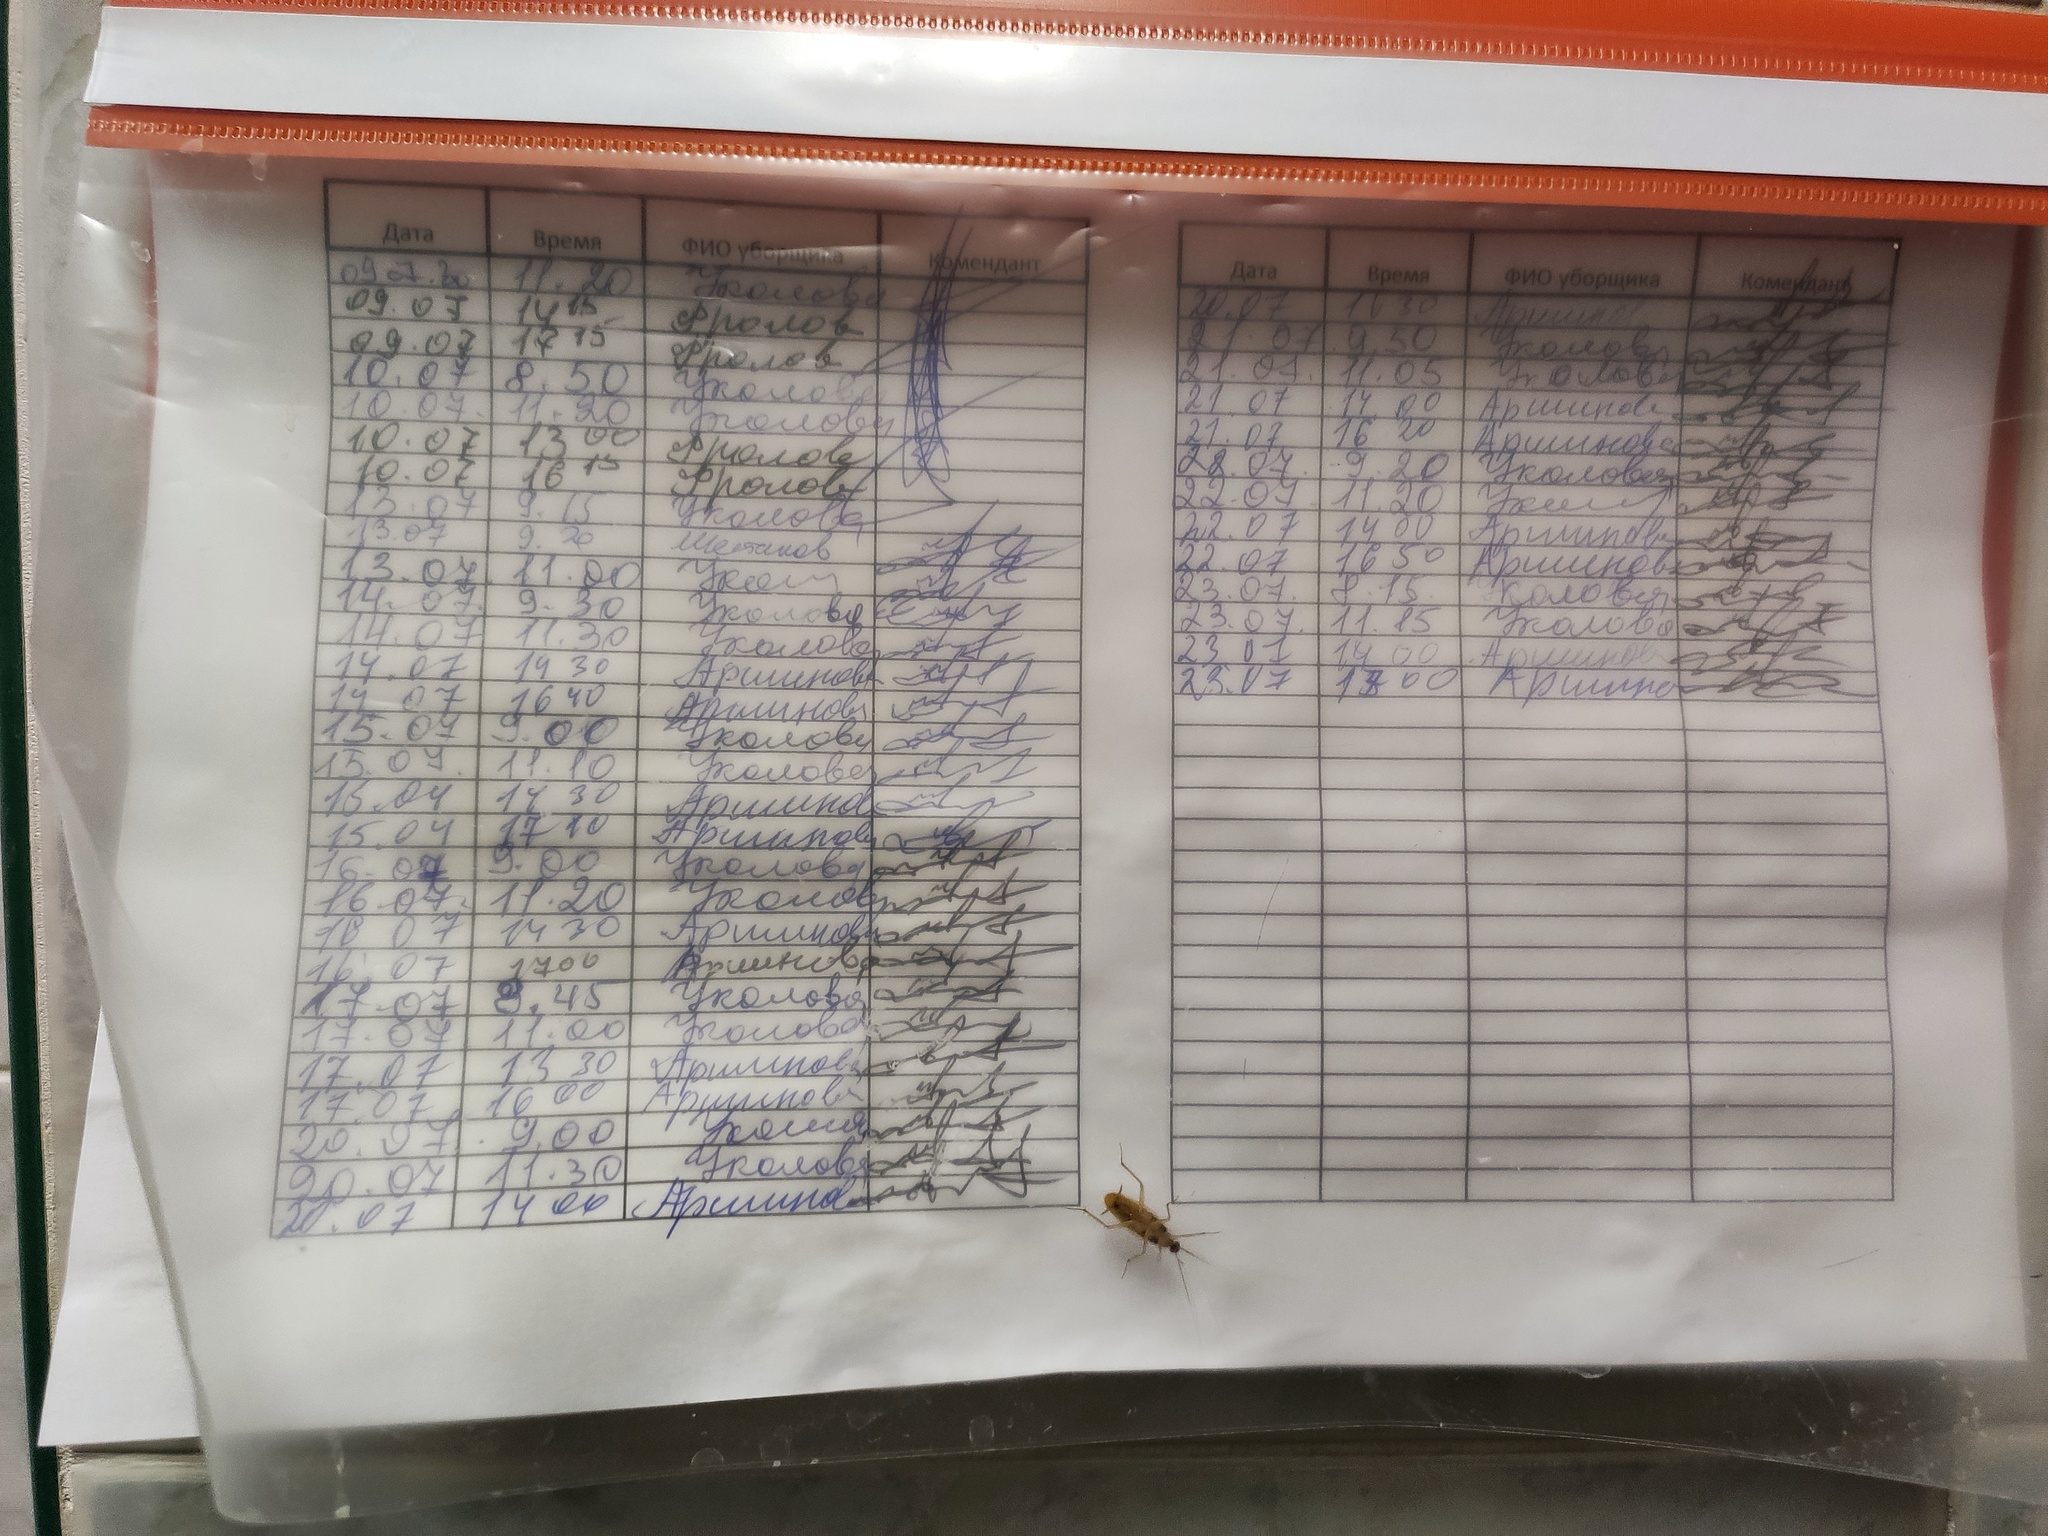 Дата Время ФИО уборщика Комендант
09.7.20 11.20 Уколова
09.07 14 15 Фролов
09.07 17 15 Фролов
10.07 8.50 Уколова
10.07. 11.20 Уколова
10.07 13 00 Фролов
10.07 16 15 Фролов
13.07 9.15 Уколова
13.07 9.20
13.07 11.00
14.07. 9.30 Уколова
14.07 11.30 Уколова
14.07 14 30 Аршинова
14 07 16 40 Аршинова
15.07 9.00 Уколова
15.07. 11.10 Уколова
15.07 14 30 Аршинов
15.07 17 10 Аршинова
16.07 9.00 Уколова
16.07. 11.20 Уколова
16 07 14 30 Аршинова
16.07 17 00 Аршинова
17.07 9.45 Уколова
17.07 11.00 Уколова
17.07 13 30 Аршинова
17.07 16 00 Аршинова
20.07. 9.00
20.07 11.30 Уколова
20.07 14 00 Аршинов
Дата Время ФИО уборщика Комендант
20.07 16 30 Аршинов
21.07 9.50 Уколова
21.07. 11.05 Уколова
21 07 14 00 Аршинова
21.07 16 20 Аршинова
22.07. 9.20 Уколова
22.07 11.20
22.07 14 00 Аршинова
22.07 16 50 Аршинова
23.07. 8.15. Уколова
23.07. 11.15 Уколова
23 07 14 00 Аршинова
23.07 17 00 Аршино